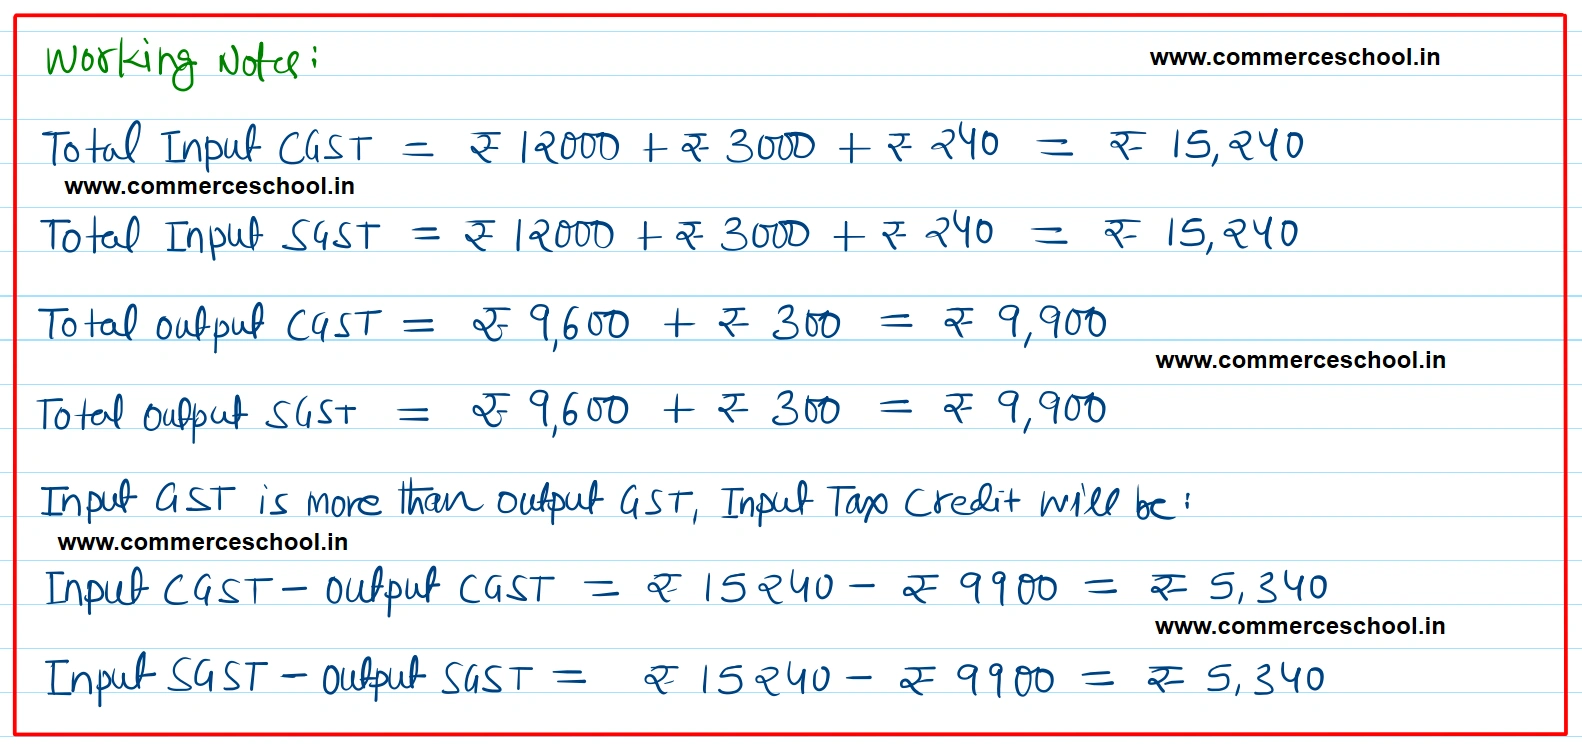 Working Note:
www.commerceschool.in
Total Input CGST = ₹ 12000 + ₹ 3000 + ₹ 240 = ₹ 15,240
www.commerceschool.in
Total Input SGST = ₹ 12000 + ₹ 3000 + ₹ 240 = ₹ 15,240
Total output CGST = ₹ 9,600 + ₹ 300 = ₹ 9,900
www.commerceschool.in
Total output SGST = ₹ 9,600 + ₹ 300 = ₹ 9,900
Input GST is more than output GST, Input Tax Credit will be:
www.commerceschool.in
Input CGST - output CGST = ₹ 15240 - ₹ 9900 = ₹ 5,340
www.commerceschool.in
Input SGST - output SGST = ₹ 15240 - ₹ 9900 = ₹ 5,340